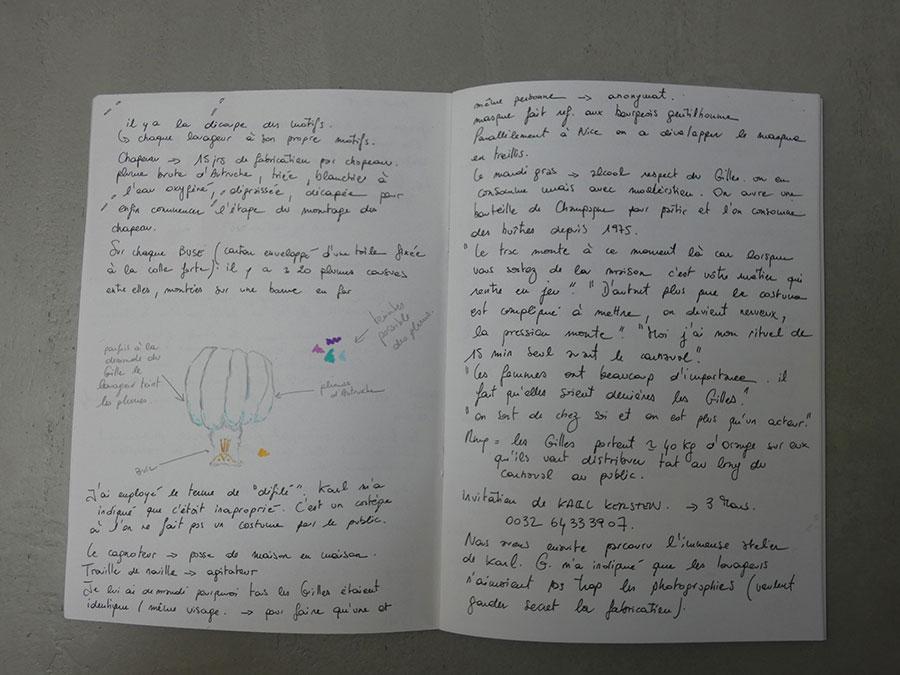 il y a la découpe des motifs.
↳ chaque louageur à son propre motifs.
Chapeau → 15 jrs de fabrication par chapeau.
plume brute d'Autruche, triée, blanchie à
l'eau oxyfiné, dépraissée, décapée pour
enfin commencer l'étape du montage du
chapeau.
Sur chaque BUSE (carton enveloppé d'une toile fixée
à la colle forte): il y a ± 20 plumes cousues
entre elles, montées sur une barre en fer
teintes
possible
des plumes.
parfois à la
demande du
Gille le
louageur teint
les plumes.
plumes
d'Autruche
Buse
J'ai employé le terme de "défilé". Karl m'a
indiqué que c'était inaproprié. C'est un cortège
où l'on ne fait pas un costume pour le public.
Le cagnoteur → passe de maison en maison.
→ agitateur
Je lui ai demandé pourquoi tous les Gilles étaient
identique / même visage. → pour faire qu'une et
même personne → anonymat.
masque fait ref. aux bourgeois gentilhomme
Parallèlement à Nice on a développer le masque
en treillis.
Le mardi gras → alcool respect du Gille. on en
consomme mais avec modération. On ouvre une
bouteille de Champagne pour partir et l'on consomme
des huîtres depuis 1975.
"Le trac monte à ce moment là car lorsque
vous sortez de la maison c'est votre métier qui
rentre en jeu" "D'autant plus que le costume
est compliqué à mettre, on devient nerveux,
la pression monte" "Moi j'ai mon rituel de
15 min seul avant le carnaval"
"Les femmes ont beaucoup d'importance. il
fait qu'elles soient derrières les Gilles."
"on sort de chez soi et on est plus qu'un acteur!"
Rmq = les Gilles portent ± 40 kg d'orange sur eux
qu'ils vont distribuer tout au long du
carnaval au public.
Invitation de KARL KERSTEN. → 3 Mars.
0032 64333907.
Nous avons ensuite parcouru l'immense atelier
de Karl. G. m'a indiqué que les louageurs
n'aimaient pas trop les photographies (veulent
garder secret la fabrication).